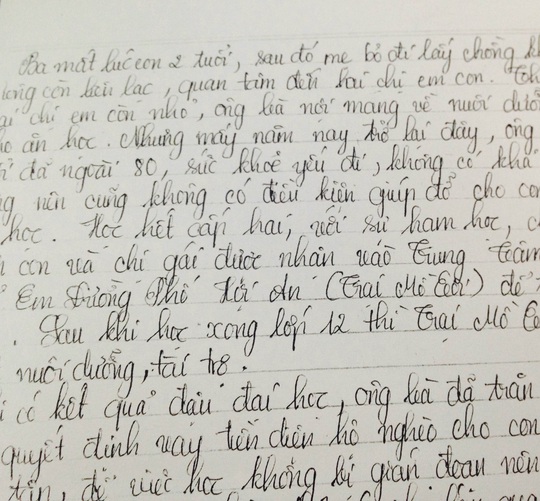 Ba mất lúc con 2 tuổi, sau đó mẹ bỏ đi lấy chồng
còn liên lạc, quan tâm đến hai chị em con.
chị em còn nhỏ, ông bà nội mang về nuôi
ăn học. Nhưng mấy năm nay trở lại đây, ông
đã ngoài 80, sức khoẻ yếu đi, không có khả
nên cũng không có điều kiện giúp đỡ cho con
học. Học hết cấp hai, với sự ham học,
con và chị gái được nhận vào Trung tâm
Em Đường Phố Hội An (Trại Mồ Côi) để
. Sau khi học xong lớp 12 thì Trại Mồ
nuôi dưỡng, tài trợ.
có kết quả đậu đại học, ông bà đã trăn
quyết định vay tiền diện hộ nghèo cho con
để việc học không bị gián đoạn nên